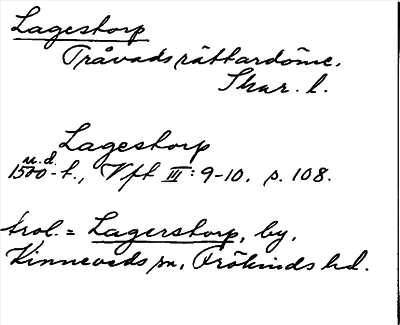 Lagestorp
Tråvads rättardöme.
Skar. l.
Lagestorp
u.d.
1500-t., Vft III: 9-10. s. 108.
trol. = Lagerstorp, by,
Kinneveds sn, Frökinds hd.